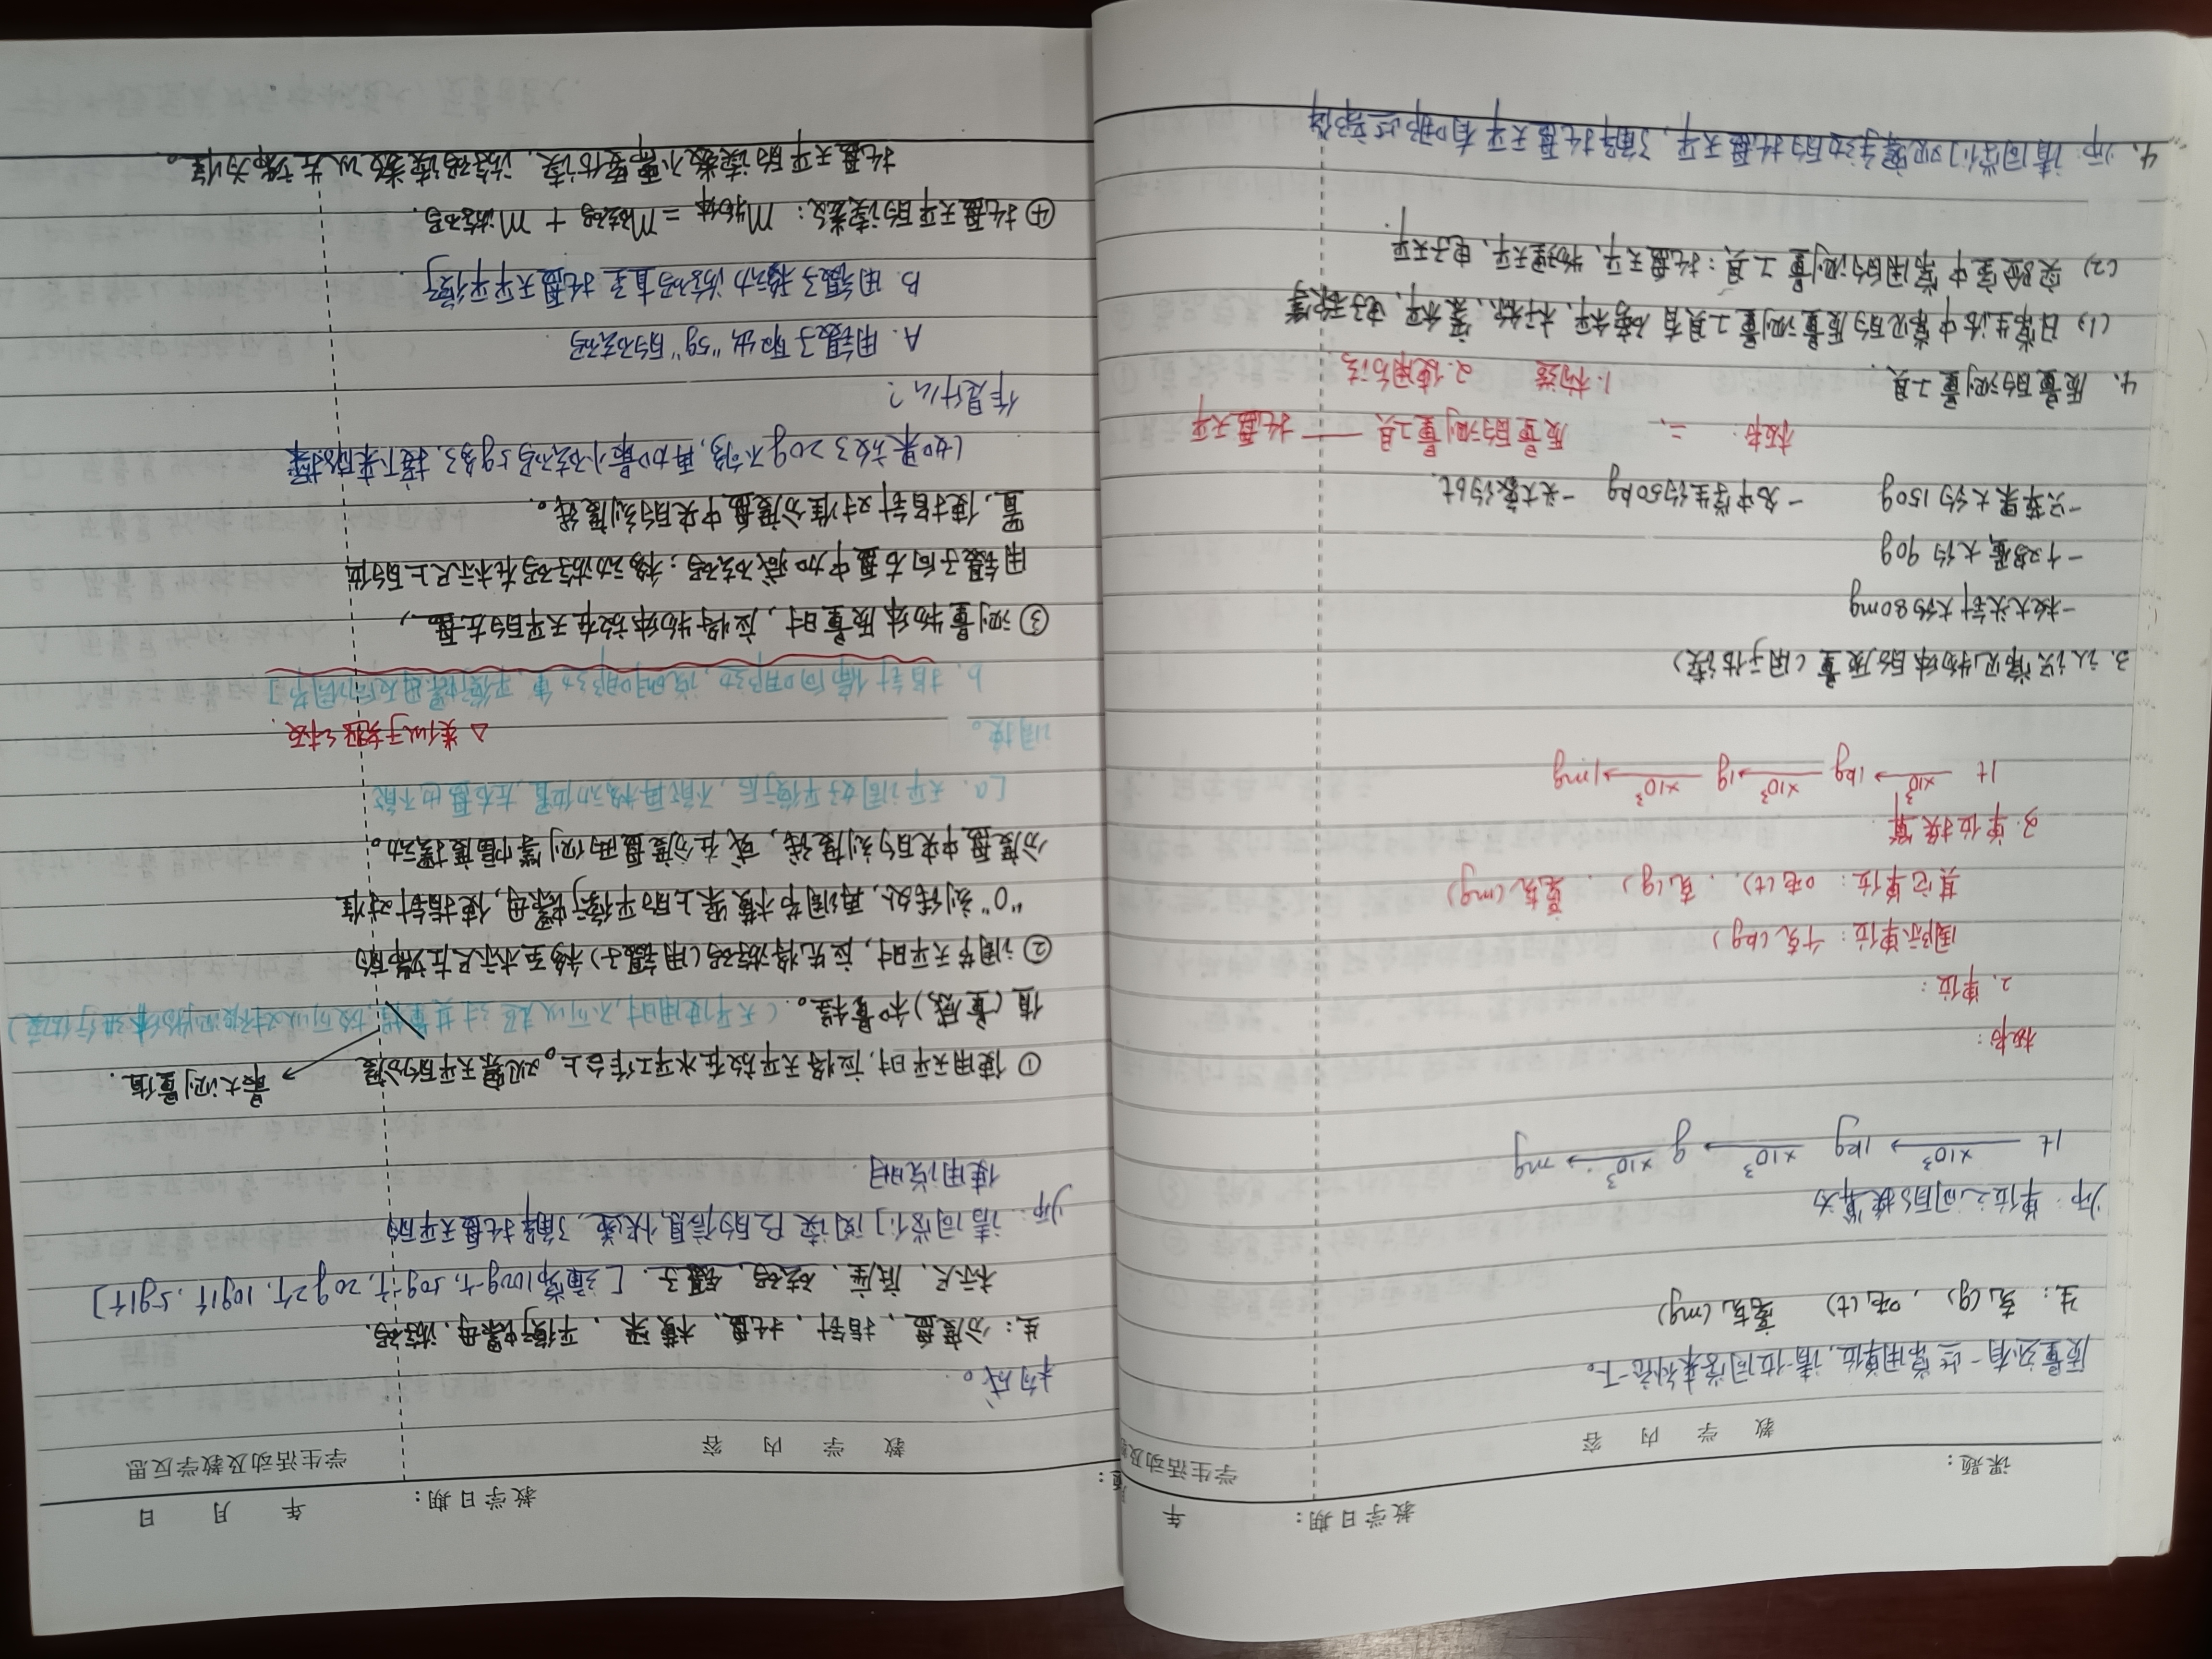 教学日期： 年
课题：
教 学 内 容 学生活动及教
质量还有一些常用单位，请一位同学来补充一下。
生：克(g)，吨(t) 毫克(mg)
师：单位之间的换算为
1t ×10³ 1kg ×10³ g ×10³ mg
板书：
2. 单位：
国际单位：千克(kg)
其它单位：吨(t)、克(g)、毫克(mg)
3. 单位换算
1t ×10³ 1kg ×10³ 1g ×10³ 1mg
3. 认识常见物体的质量(用于估读)
一枚大头针大约80mg
一个鸡蛋大约90g
一只苹果大约150g 一名中学生约50kg 一头大象约6t.
板书： 二、 质量的测量工具 —— 托盘天平
1.构造 2.使用方法
4. 质量的测量工具.
(1) 日常生活中常见的质量测量工具有磅秤、杆秤、案秤、电子秤等
(2) 实验室中常用的测量工具：托盘天平、物理天平、电子天平.
4. 师：请同学们观察手边的托盘天平，了解托盘天平有哪些部件
教学日期： 年 月 日
题：
教 学 内 容 学生活动及教学反思
构成。
生：分度盘、指针、托盘、横梁、平衡螺母、游码、
标尺、底座、砝码、镊子. [通常100g一个、50g一个、20g2个、10g1个、5g1个]
师：请同学们阅读P2的信息快递，了解托盘天平的
使用说明.
① 使用天平时，应将天平放在水平工作台上。观察天平的分度 最大测量值.
值(量感)和量程。(天平使用时不可以超过其量程，故可以对被测物体进行估读)
② 调节天平时，应先将游码(用镊子)移至标尺左端的
“0”刻线处，再调节横梁上的平衡螺母，使指针对准
分度盘中央的刻度线，或在分度盘两侧等幅度摆动。
[a. 天平调好平衡后，不能再移动位置，左右盘也不能
调换。
△ 类似于跷跷板.
b. 指针偏向哪边，说明哪边重，平衡螺母反向调节]
③ 测量物体质量时，应将物体放在天平的左盘，
用镊子向右盘中加减砝码；移动游码在标尺上的位
置，使指针对准分度盘中央的刻度线。
(如果放了20g不够，再加最小砝码5g多了，接下来的操
作是什么？
A. 用镊子取出“5g”的砝码
B. 用镊子移动游码直至托盘天平平衡)
④ 托盘天平的读数：m物体 = m砝码 + m游码.
托盘天平的读数不需要估读，游码读数以左端为准。